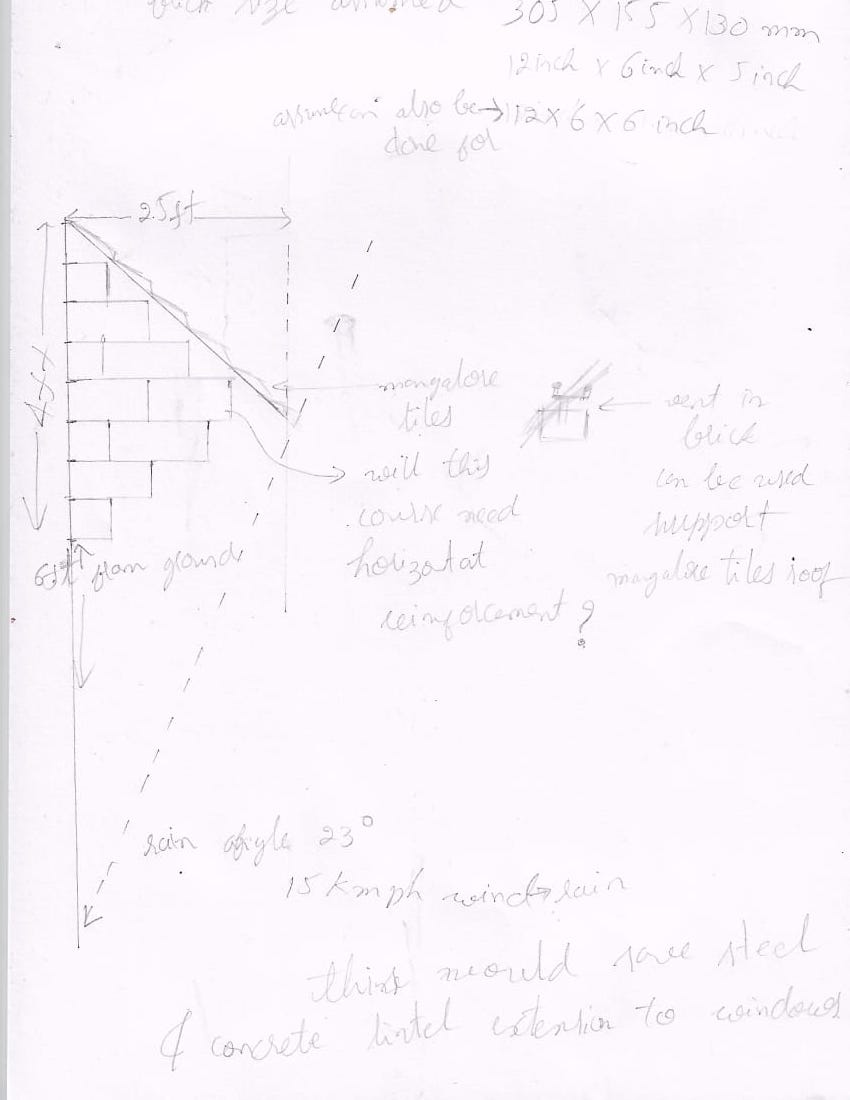 brick size assumed 305 X 155 X 130 mm
12inch x 6inch x 5inch
also be → 112 X 6 X 6 inch
done for
2.5ft
mangalore
tiles
will this
course need
horizotat
reinforcement ?
vent in
brick
can be used
support
mangalore tiles roof
6ft from ground
rain angle 23°
15 Kmph wind → rain
this would save steel
& concrete lintel extension to windows